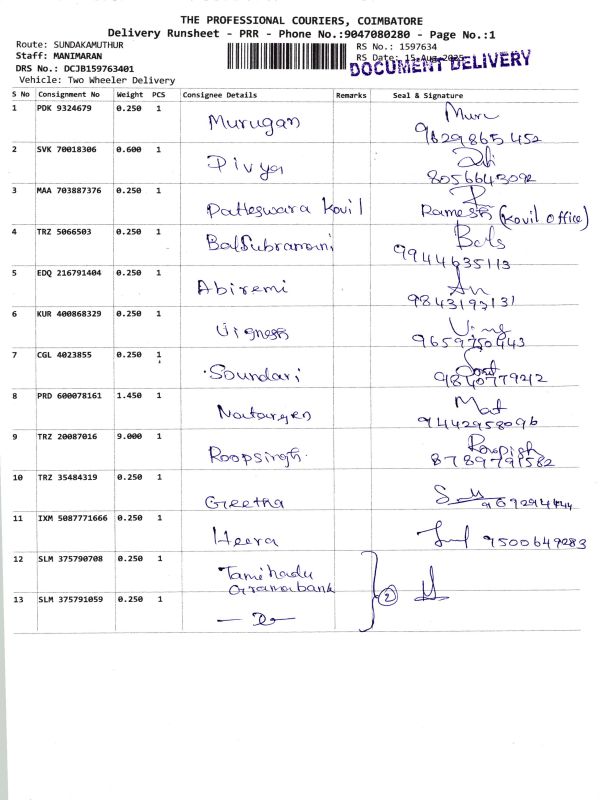 THE PROFESSIONAL COURIERS, COIMBATORE
Delivery Runsheet - PRR - Phone No.:9047080280 - Page No.:1
Route: SUNDAKAMUTHUR
RS No.: 1597634
Staff: MANIMARAN
RS Date: 15-Aug-2025
DRS No.: DCJB159763401
DOCUMENT DELIVERY
Vehicle: Two Wheeler Delivery
S No Consignment No Weight PCS Consignee Details Remarks Seal & Signature
1 PDK 9324679 0.250 1 Murugan Muru
9629865452
2 SVK 70018306 0.600 1 Divya
8056643092
3 MAA 703887376 0.250 1 Patteswara Kovil Ramesh (Kovil office)
4 TRZ 5066503 0.250 1 BalSubramani Bals
9944635113
5 EDQ 216791404 0.250 1 Abiremi
9843197131
6 KUR 400868329 0.250 1 Vignesh
9659750443
7 CGL 4023855 0.250 1 Soundari
9840779242
8 PRD 600078161 1.450 1 Natargen
9442958096
9 TRZ 20087016 9.000 1 Roopsingh
8789791582
10 TRZ 35484319 0.250 1 Greetha
11 IXM 5087771666 0.250 1 Heera 9500649283
12 SLM 375790708 0.250 1 Tamilnadu
Gramabank
2
13 SLM 375791059 0.250 1